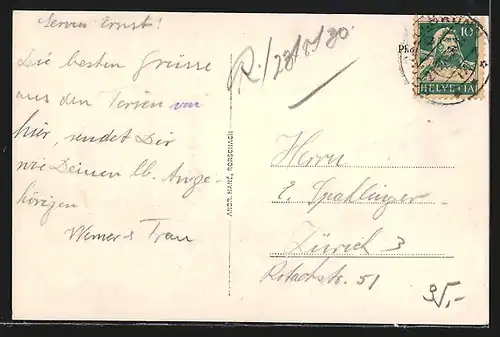 Servus Ernst!
Die besten Grüsse
aus den Ferien von
hier, sendet Dir
wie Deinen lb. Ange-
hörigen
Werner & Frau
R./28/8/30
ANDR. HANE, RORSCHACH
Pho
10
HELVETIA
Herrn
E. Spahlinger
Zürich 3
Rotachstr. 51
35,-